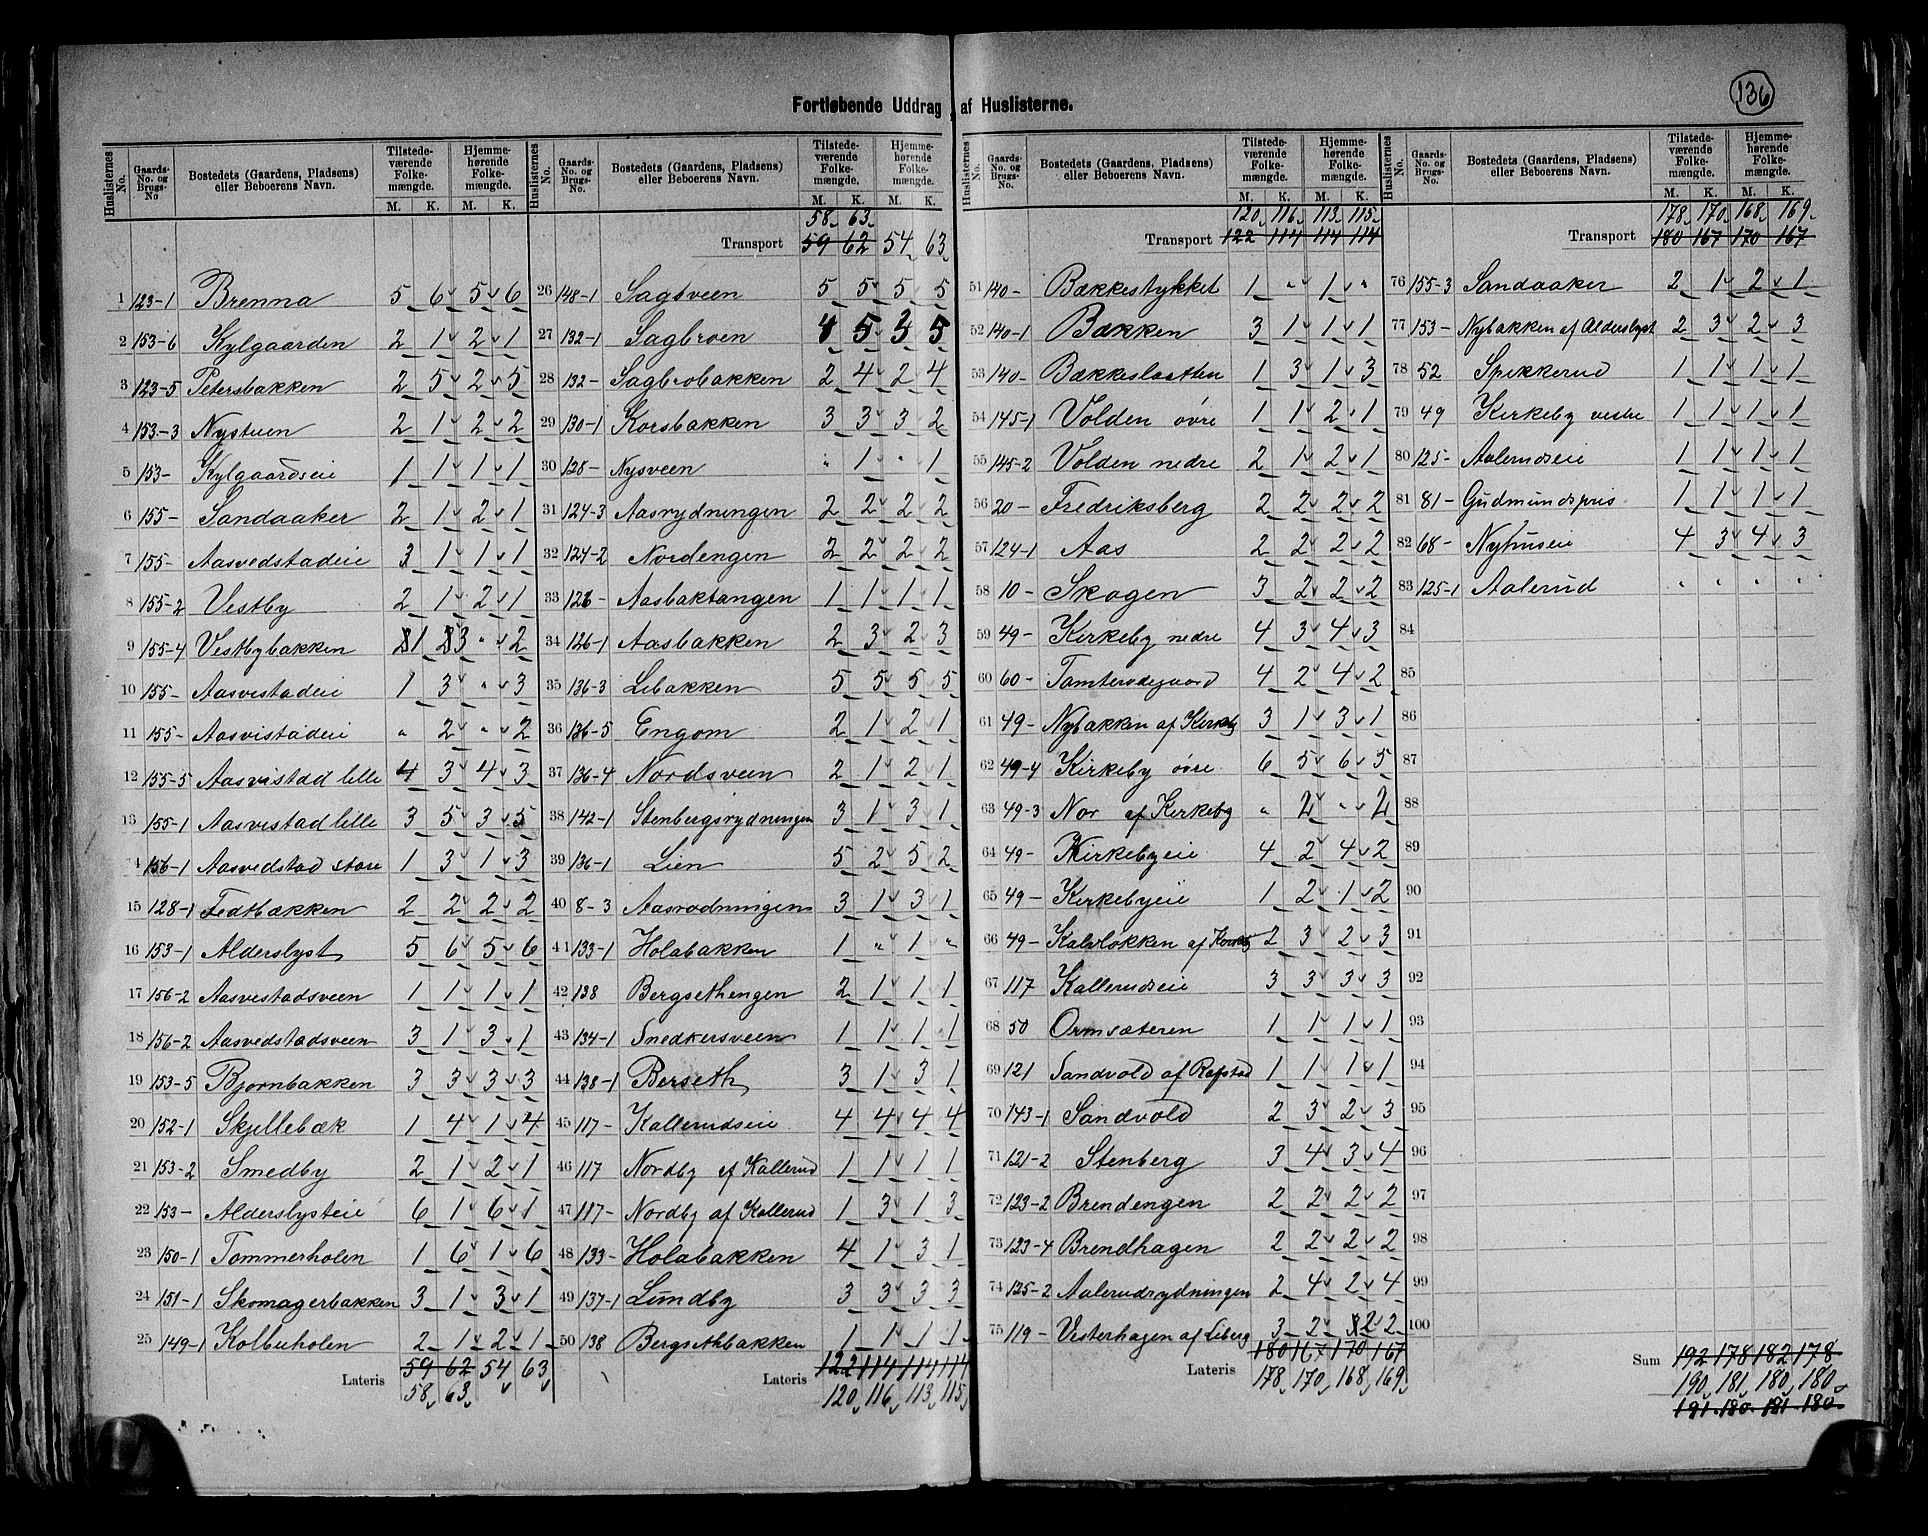 136
Fortløbende Uddrag af Huslisterne.
Huslisternes No. Gaards-No. og Brugs-No Bostedets (Gaardens, Pladsens) eller Beboerens Navn. Tilstedeværende Folkemængde. M. K. Hjemmehørende Folkemængde. M. K.
1 123-1 Brenna 5 6 5 6
2 153-6 Kylgaarden 2 1 2 1
3 123-5 Petersbakken 2 5 2 5
4 153-3 Nystuen 2 1 2 2
5 153- Kylgaardseie 1 1 1 1
6 155- Sandaaker 2 1 2 1
7 155- Aasvedstadeie 3 1 1 1
8 155-2 Vestby 2 1 2 1
9 155-4 Vestbybakken 1 3 " 2
10 155- Aasvistadeie 1 3 " 3
11 155- Aasvistadeie " 2 " 2
12 155-5 Aasvistad lille 4 3 4 3
13 155-1 Aasvistad lille 3 5 3 5
14 156-1 Aasvedstad store 1 3 1 3
15 128-1 Fedtbækken 2 2 2 2
16 153-1 Alderslyst 5 6 5 6
17 156-2 Aasvestadsveen 1 1 1 1
18 156-2 Aasvedstadsveen 3 1 3 1
19 153-5 Bjørnbakken 3 3 3 3
20 152-1 Skjellebæk 1 4 1 4
21 153-2 Smedby 2 1 2 1
22 153- Alderslysteie 6 1 6 1
23 150-1 Tommerholen 1 6 1 6
24 151-1 Skomagerbakken 3 1 3 1
25 149-1 Kolbuholen 2 1 2 1
Lateris 59 62 54 63
58 63
Huslisternes No. Gaards-No. og Brugs-No. Bostedets (Gaardens, Pladsens) eller Beboerens Navn. Tilstedeværende Folkemængde. M. K. Hjemmehørende Folkemængde. M. K.
58 63
Transport 59 62 54 63
26 148-1 Sagsveen 5 5 5 5
27 132-1 Sagbroen 4 5 3 5
28 132- Sagbrobakken 2 4 2 4
29 130-1 Korsbakken 3 3 3 2
30 128- Nysveen " 1 " 1
31 124-3 Aasrydningen 2 2 2 2
32 124-2 Nordengen 2 2 2 2
33 126- Aasbaktangen 1 1 1 1
34 126-1 Aasbakken 2 3 2 3
35 136-3 Libakken 5 5 5 5
36 136-5 Engom 2 1 2 1
37 136-4 Nordsveen 2 1 2 1
38 142-1 Stenbergsrydningen 3 1 3 1
39 136-1 Lien 5 2 5 2
40 8-3 Aasrødningen 3 1 3 1
41 133-1 Holabakken 1 " 1 "
42 138 Bergsethengen 2 1 1 1
43 134-1 Snedkersveen 1 1 1 1
44 138-1 Berseth 3 1 3 1
45 117- Kallerudseie 4 4 4 4
46 117 Nordby af Kallerud 1 1 1 1
47 117- Nordby af Kallerud 1 3 1 3
48 133- Holabakken 4 1 3 1
49 137-1 Lundby 3 3 3 3
50 138 Bergsethbakken 1 1 1 1
Lateris 122 114 114 114
120 116 113 115
Huslisternes No. Gaards-No. og Brugs-No. Bostedets (Gaardens, Pladsens) eller Beboerens Navn. Tilstedeværende Folkemængde. M. K. Hjemmehørende Folkemængde. M. K.
120 116 113 115
Transport 122 114 114 114
51 140- Bækkestykket 1 " 1 "
52 140-1 Bækken 3 1 1 1
53 140- Bækkeslaatten 1 3 1 3
54 145-1 Volden øvre 1 1 2 1
55 145-2 Volden nedre 2 1 2 1
56 20- Fredriksberg 2 2 2 2
57 124-1 Aas 2 2 2 2
58 10- Skogen 3 2 2 2
59 49- Kirkeby nedre 4 3 4 3
60 60- Tomterødegaard 4 2 4 2
61 49- Nybakken af Kirkeby 3 1 3 1
62 49-4 Kirkeby øvre 6 5 6 5
63 49-3 Nor af Kirkeby " 2 " 2
64 49- Kirkebyeie 4 2 4 2
65 49- Kirkebyeie 1 2 1 2
66 49- Kalvløkken af Kirkeby 2 3 2 3
67 117 Kallerudseie 3 3 3 3
68 50 Ormsæteren 1 1 1 1
69 121 Sandvold af Rafstad 1 1 1 1
70 143-1 Sandvold 2 3 2 3
71 121-2 Stenberg 3 4 3 4
72 123-2 Brendengen 2 2 2 2
73 123-4 Brendhagen 2 2 2 2
74 125-2 Aalerudrydningen 2 4 2 4
75 119- Vesterhagen af Liberg 3 2 2 2
Lateris 180 167 170 167
178 170 168 169
Huslisternes No. Gaards-No. og Brugs-No. Bostedets (Gaardens, Pladsens) eller Beboerens Navn. Tilstedeværende Folkemængde. M. K. Hjemmehørende Folkemængde. M. K.
178 170 168 169
Transport 180 167 170 167
76 155-3 Sandaaker 2 1 2 1
77 153- Nybakken af Alderslyst 2 3 2 3
78 52 Spikkerud 1 1 1 1
79 49 Kirkeby vestre 1 1 1 1
80 125- Aalerudseie 1 1 1 1
81 81- Gudmundspris 1 1 1 1
82 68- Nyhuseie 4 3 4 3
83 125-1 Aalerud " " " "
84
85
86
87
88
89
90
91
92
93
94
95
96
97
98
99
100
Sum 192 178 182 178
190 181 180 180
191 180 181 180